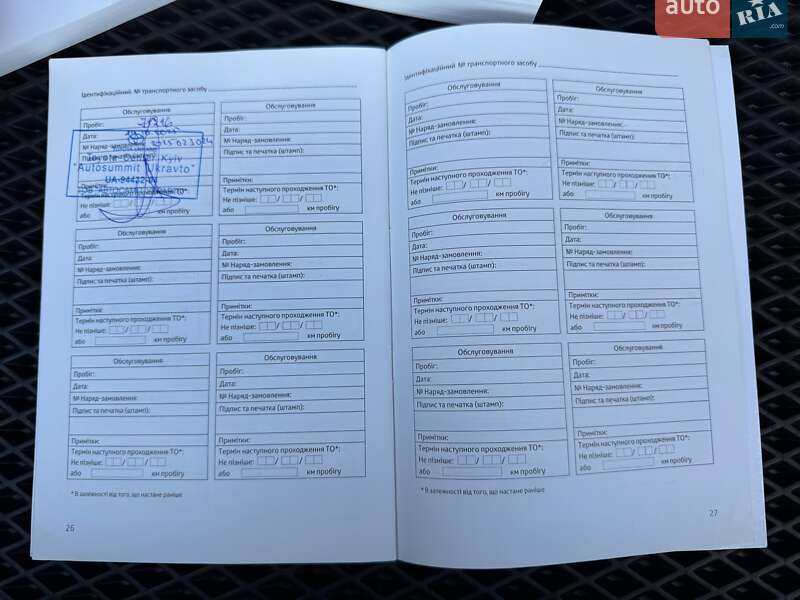 auto
RIA
.com
Ідентифікаційний № транспортного засобу
Обслуговування
Пробіг:
Дата:
№ Наряд-замовлення:
"Autosummit Ukravto"
Не пізніше:
або
Обслуговування
Пробіг:
Дата:
№ Наряд-замовлення:
Підпис та печатка (штамп):
Примітки:
Термін наступного проходження ТО*:
Не пізніше: / /
або км пробігу
Обслуговування
Пробіг:
Дата:
№ Наряд-замовлення:
Підпис та печатка (штамп):
Примітки:
Термін наступного проходження ТО*:
Не пізніше: / /
або км пробігу
Обслуговування
Пробіг:
Дата:
№ Наряд-замовлення:
Підпис та печатка (штамп):
Примітки:
Термін наступного проходження ТО*:
Не пізніше: / /
або км пробігу
Обслуговування
Пробіг:
Дата:
№ Наряд-замовлення:
Підпис та печатка (штамп):
Примітки:
Термін наступного проходження ТО*:
Не пізніше: / /
або км пробігу
Обслуговування
Пробіг:
Дата:
№ Наряд-замовлення:
Підпис та печатка (штамп):
Примітки:
Термін наступного проходження ТО*:
Не пізніше: / /
або км пробігу
* В залежності від того, що настане раніше
26
Ідентифікаційний № транспортного засобу
Обслуговування
Пробіг:
Дата:
№ Наряд-замовлення:
Підпис та печатка (штамп):
Примітки:
Термін наступного проходження ТО*:
Не пізніше: / /
або км пробігу
Обслуговування
Пробіг:
Дата:
№ Наряд-замовлення:
Підпис та печатка (штамп):
Примітки:
Термін наступного проходження ТО*:
Не пізніше: / /
або км пробігу
Обслуговування
Пробіг:
Дата:
№ Наряд-замовлення:
Підпис та печатка (штамп):
Примітки:
Термін наступного проходження ТО*:
Не пізніше: / /
або км пробігу
Обслуговування
Пробіг:
Дата:
№ Наряд-замовлення:
Підпис та печатка (штамп):
Примітки:
Термін наступного проходження ТО*:
Не пізніше: / /
або км пробігу
Обслуговування
Пробіг:
Дата:
№ Наряд-замовлення:
Підпис та печатка (штамп):
Примітки:
Термін наступного проходження ТО*:
Не пізніше: / /
або км пробігу
Обслуговування
Пробіг:
Дата:
№ Наряд-замовлення:
Підпис та печатка (штамп):
Примітки:
Термін наступного проходження ТО*:
Не пізніше: / /
або км пробігу
* В залежності від того, що настане раніше
27